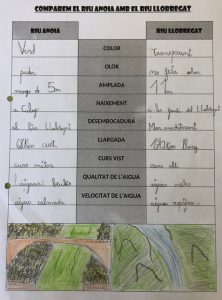 COMPAREM EL RIU ANOIA AMB EL RIU LLOBREGAT
RIU ANOIA RIU LLOBREGAT
Verd COLOR Transparent
pudor OLOR no feia olor
menys de 5m AMPLADA 11m
a Calaf NAIXEMENT a les fonts del Llobregat
al Riu Llobregat DESEMBOCADURA Mar mediterrani
68Km curt LLARGADA 170Km llarg
curs mitjà CURS VIST curs alt
aigües brutes QUALITAT DE L'AIGUA aigües netes
aigües calmada VELOCITAT DE L'AIGUA aigües ràpides